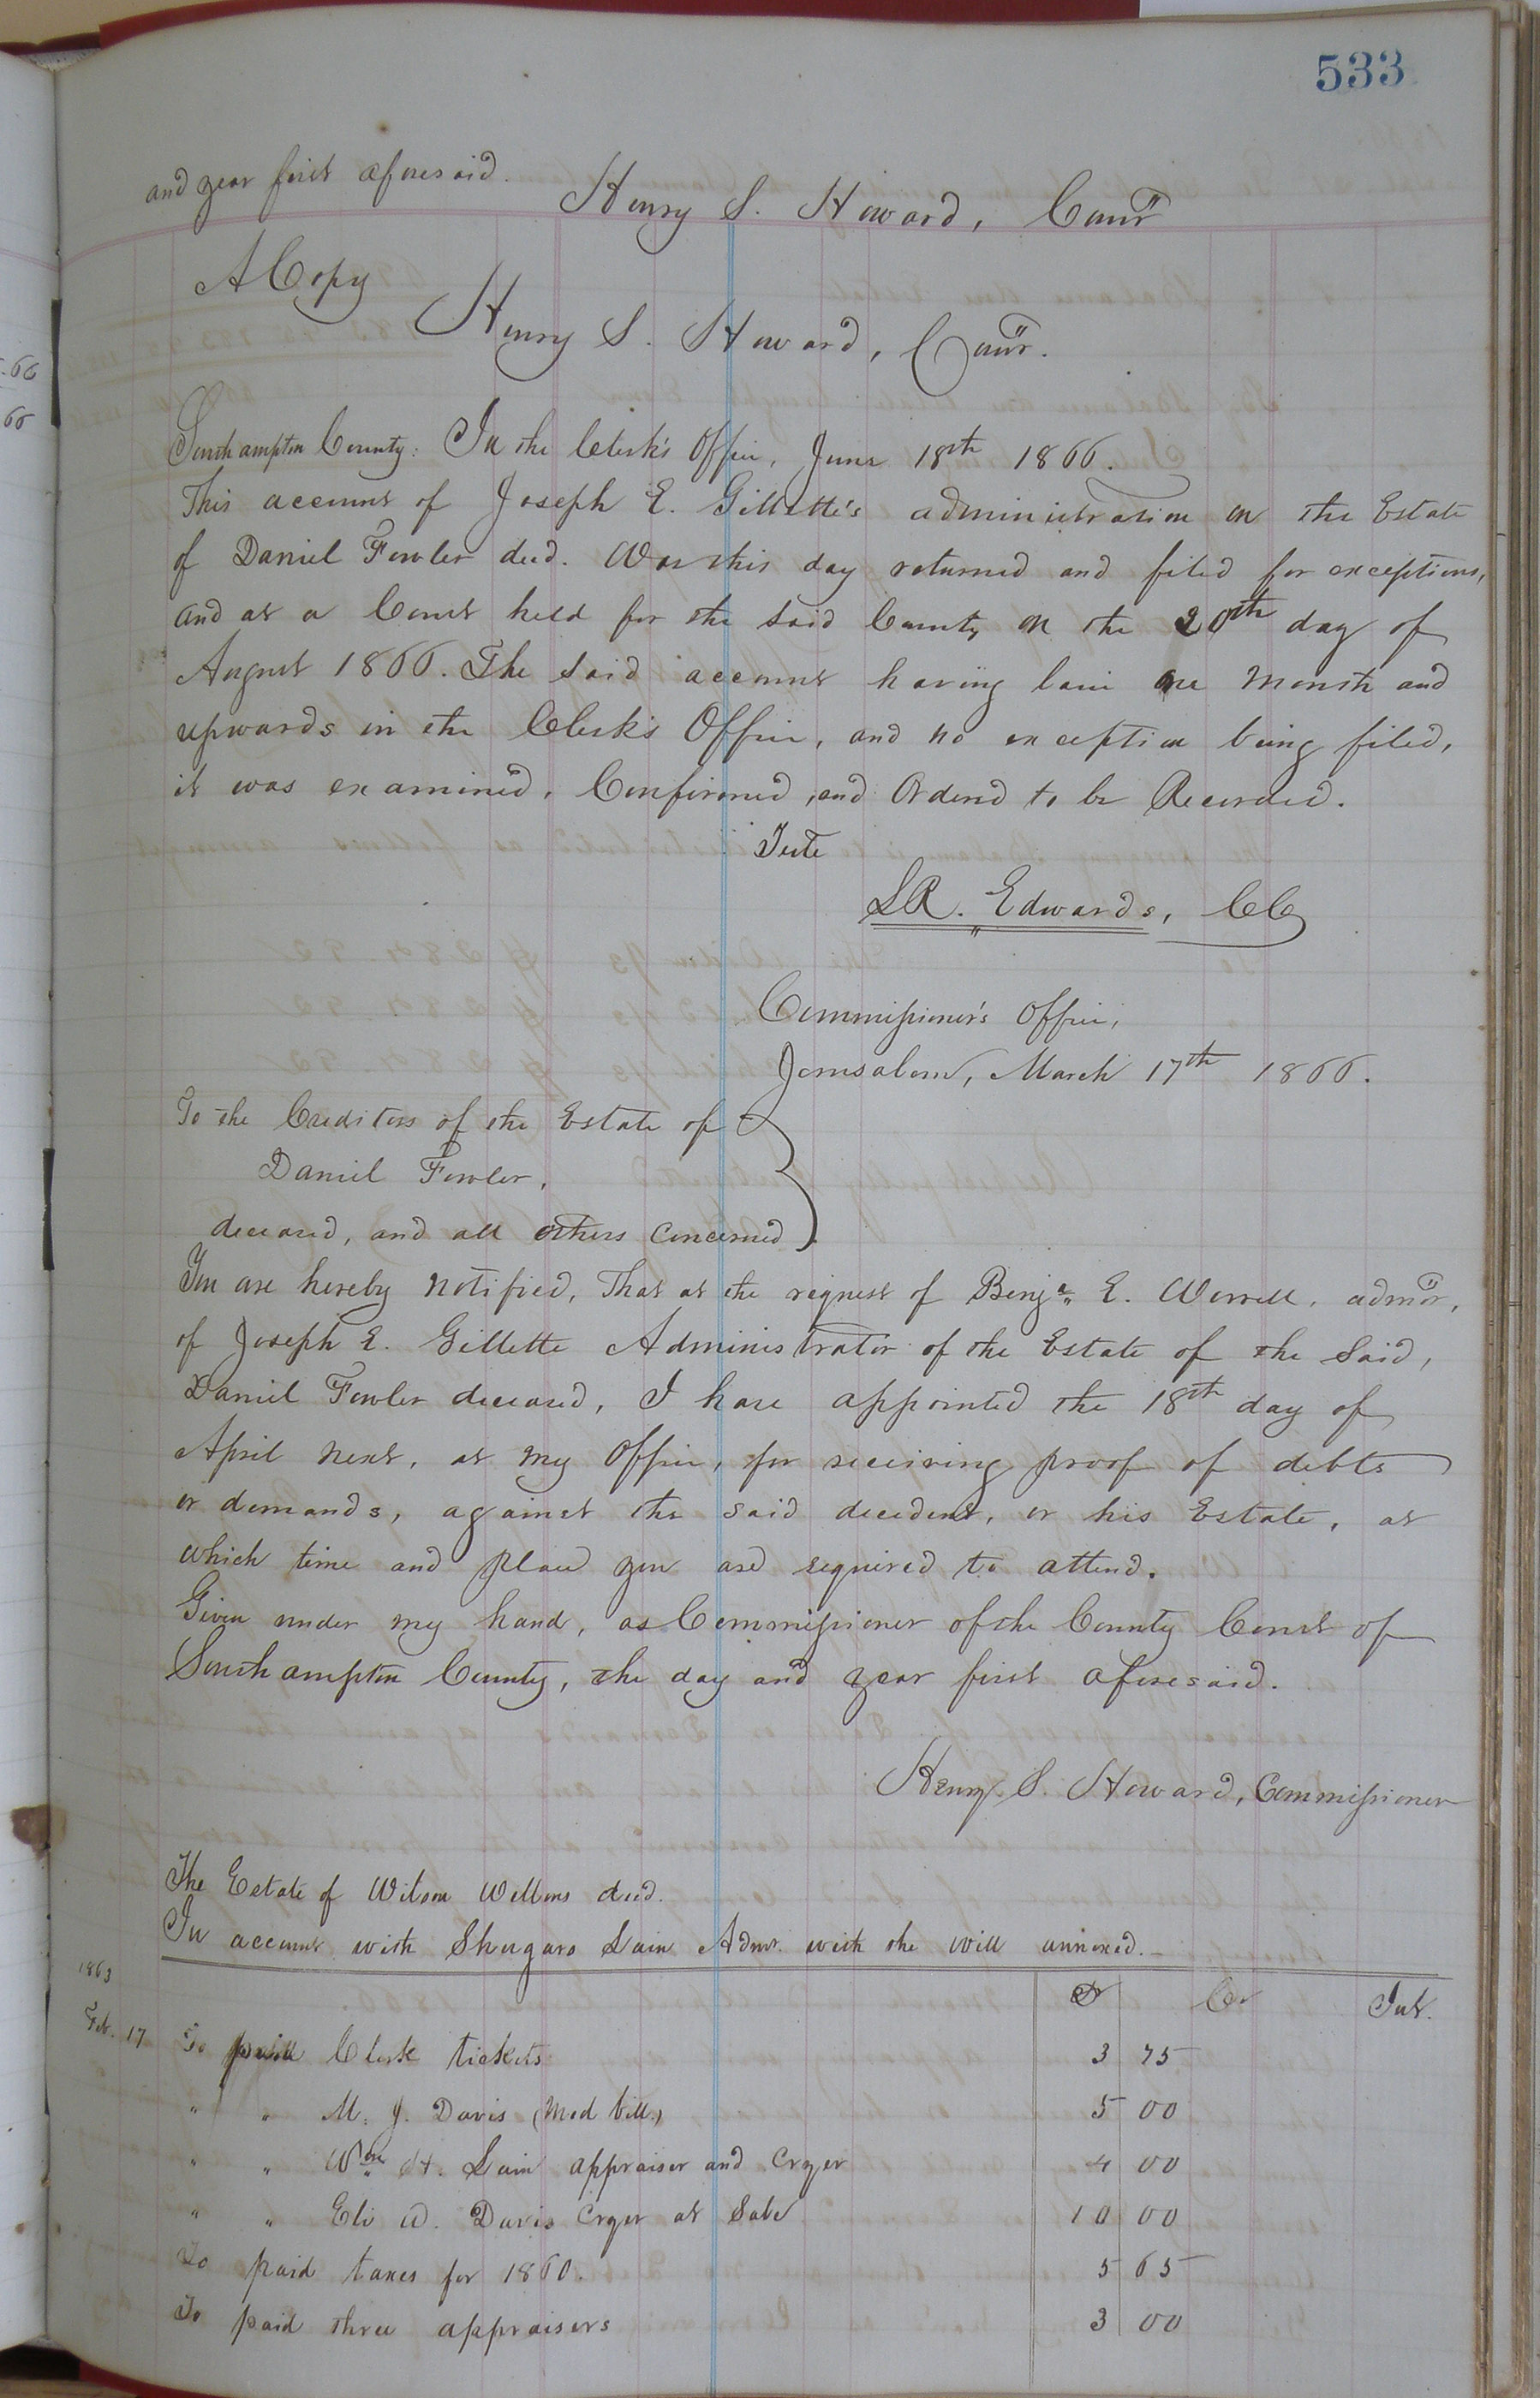 533
and year first aforesaid.
Henry S. Howard, Comr
A Copy
Henry S. Howard, Comr.
Southampton County: In the Clerk's Office, June 18th 1866.
This account of Joseph E. Gillette's administration on the Estate
of Daniel Fowler decd. Was this day returned and filed for exceptions,
and at a Court held for the said County on the 20th day of
August 1866. The said account having lain one month and
upwards in the Clerk's Office, and no exception being filed,
it was examined, Confirmed, and Ordered to be Recorded.
Teste
L.R. Edwards, CC
Commissioner's Office,
Jerusalem, March 17th 1866.
To the Creditors of the Estate of
Daniel Fowler,
deceased, and all others concerned
You are hereby notified, That at the request of Benja. E. Worrell, admor,
of Joseph E. Gillette Administrator of the Estate of the Said,
Daniel Fowler deceased, I have appointed the 18th day of
April next, at my Office, for receiving proof of debts
or demands, against the said decedent, or his Estate, at
which time and place you are required to attend.
Given under my hand, as Commissioner of the County Court of
Southampton County, the day and year first aforesaid.
Henry S. Howard, Commissioner
The Estate of Wilson Wellons decd.
In account with Shugars Lain Admr. with the will annexed.
1863 Dr Cr Int.
Feb. 17 To paid Clerk tickets 3 75
" " M. J. Davis (Med bill) 5 00
" " Wm H. Lain appraiser and Cryer 4 00
" " Eli W. Davis Cryer at Sale 10 00
To paid taxes for 1860. 5 65
To paid three appraisers 3 00
66
66